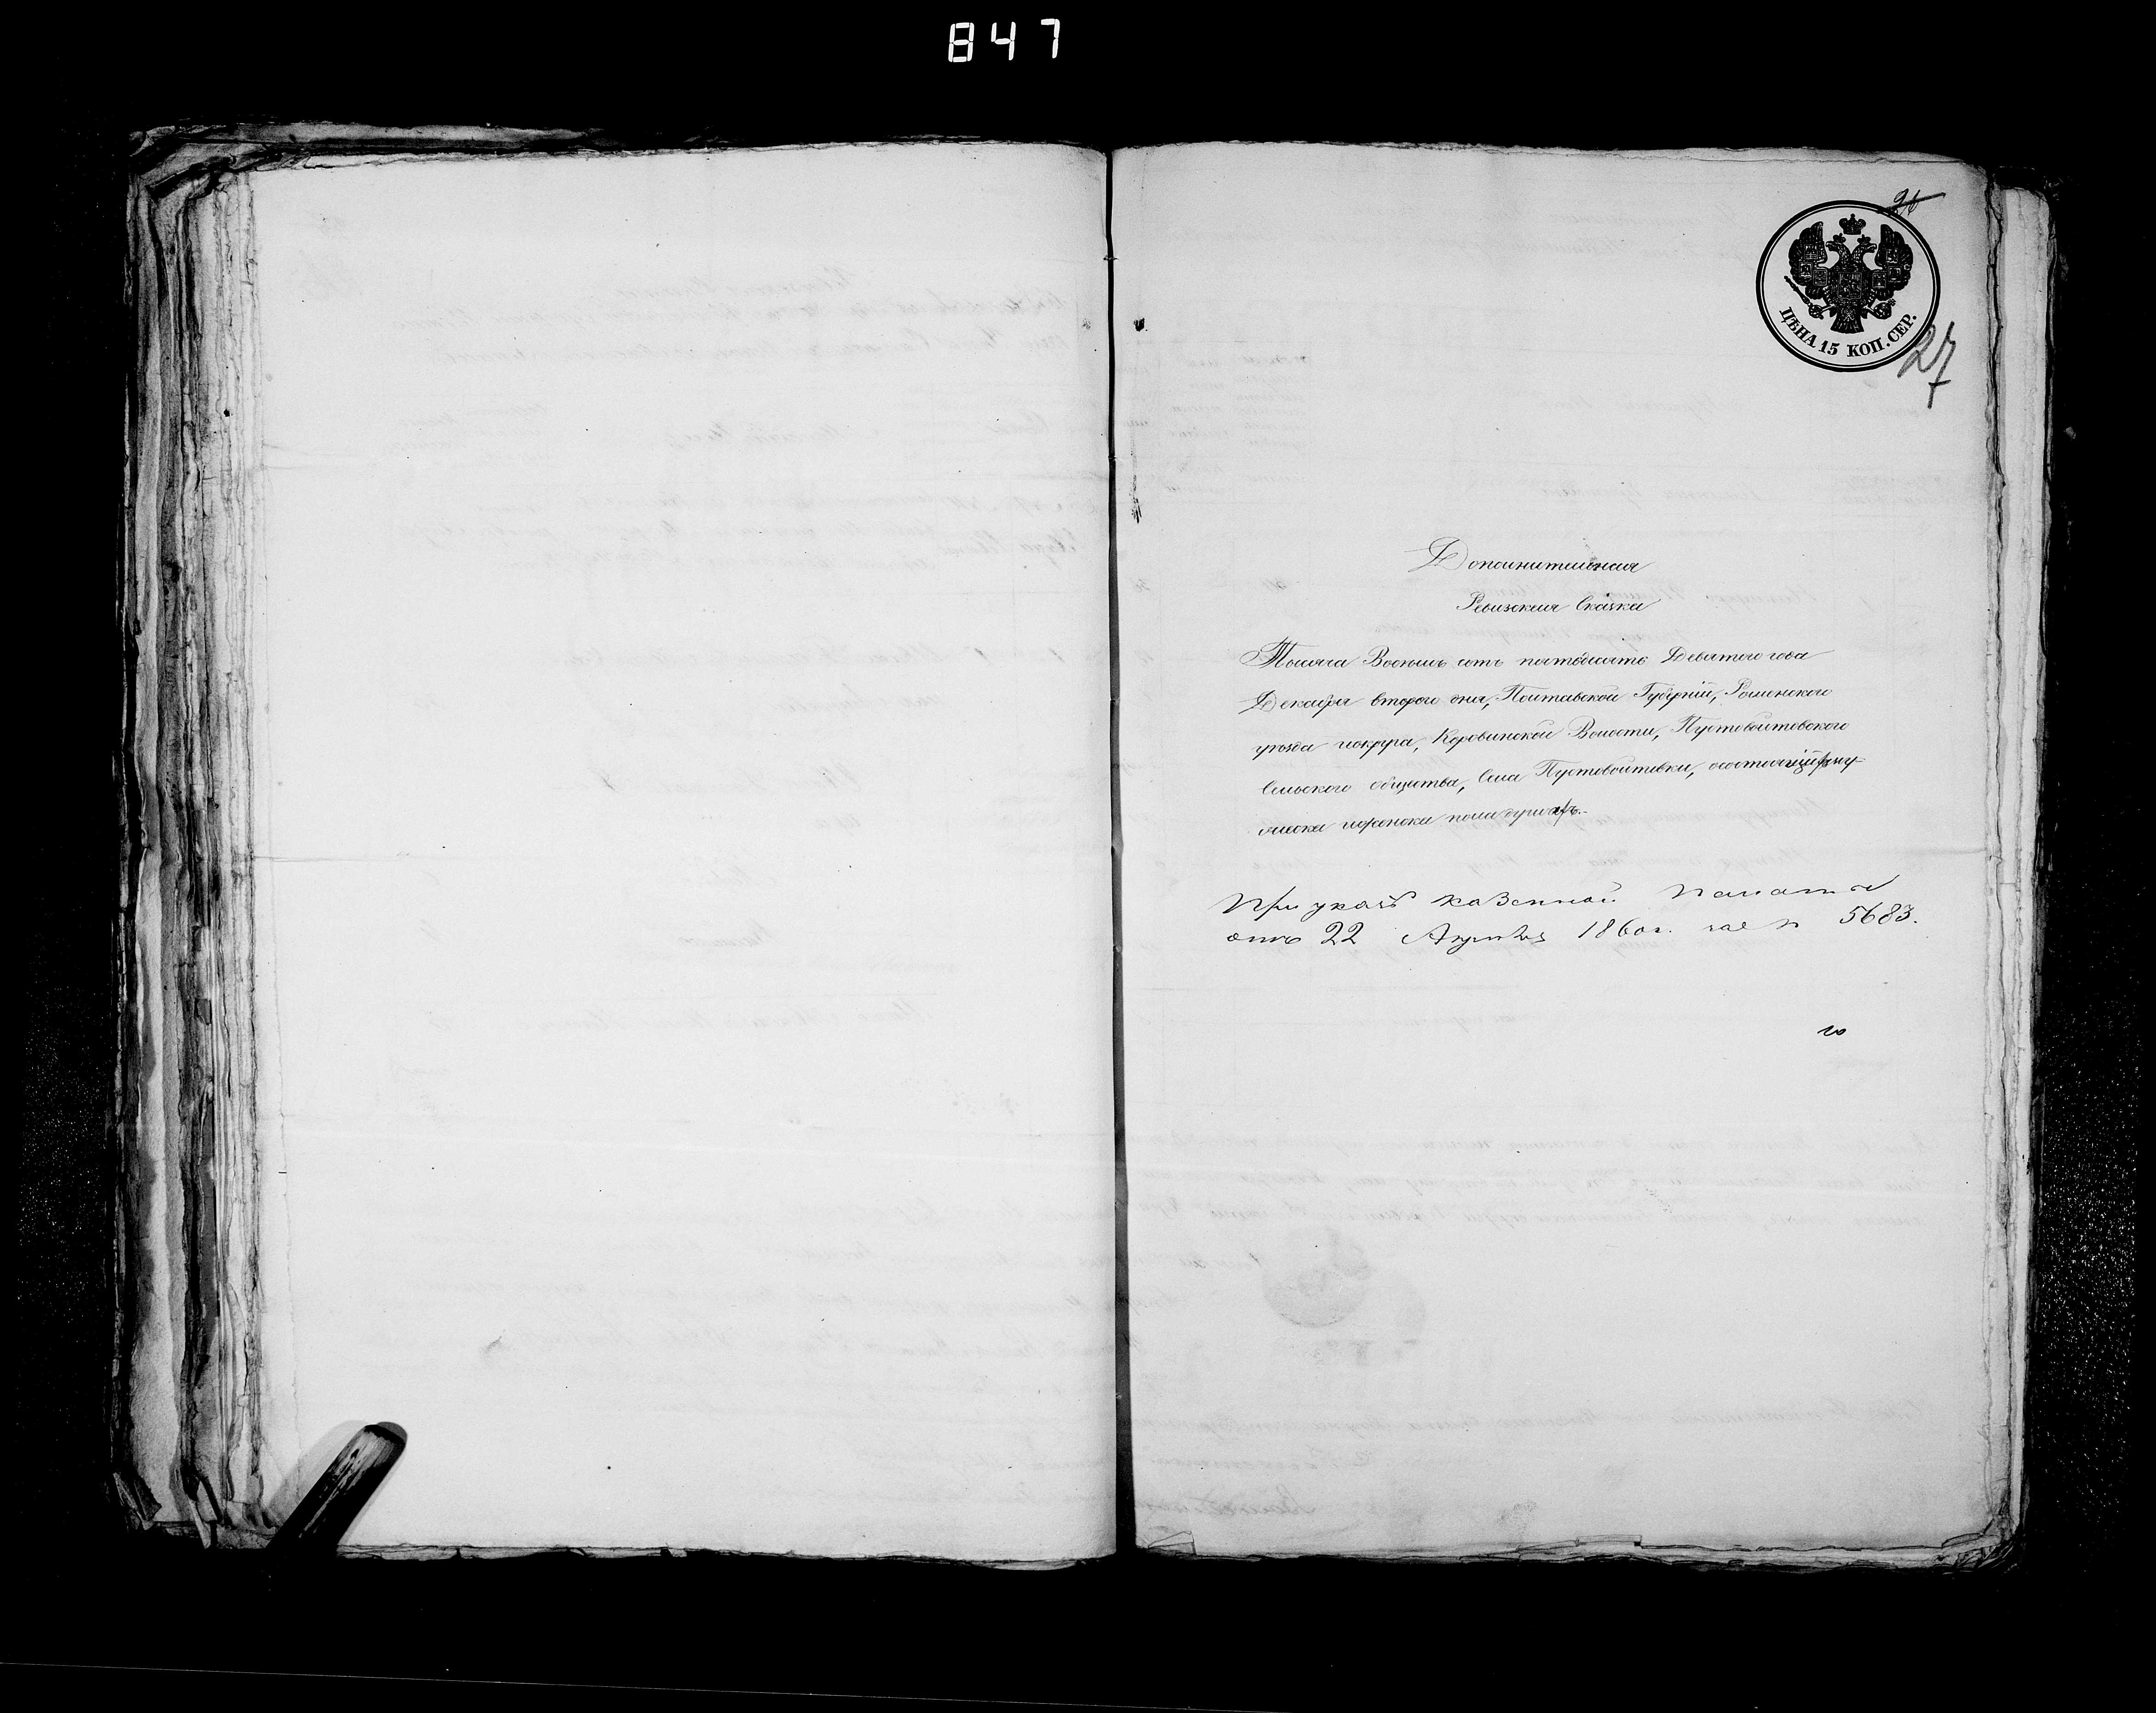 847
26
ЦѢНА 15 КОП. СЕР.
27
Дополнительная
Ревизская Сказка
Тысяча Восемь сотъ пятьдесятъ Девятого года
Декабря второго дня, Полтавской Губерніи, Роменского
уезда и округа, Коровинской Волости, Пустовойтовского
Сельского общества, Села Пустовойтовки, о состоящихъ
мужеска и женска пола душахъ.
При указѣ Казенной Палаты
отъ 22 Апрѣля 1860 г. за № 5683.